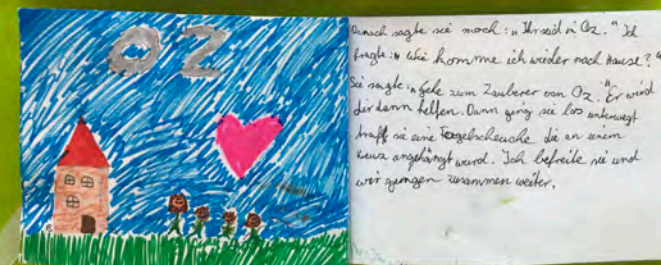 OZ
Danach sagte sie noch: „Ihr seid in Oz." Ich
fragte: „Wie komme ich wieder nach Hause?"
Sie sagte: „Gehe zum Zauberer von Oz." Er wird
dir dann helfen. Dann ging sie los unterwegt
traff sie eine Vogelscheuche die an einem
Kreuz angehängt wurd. Ich befreite sie und
wir gungen zusammen weiter.